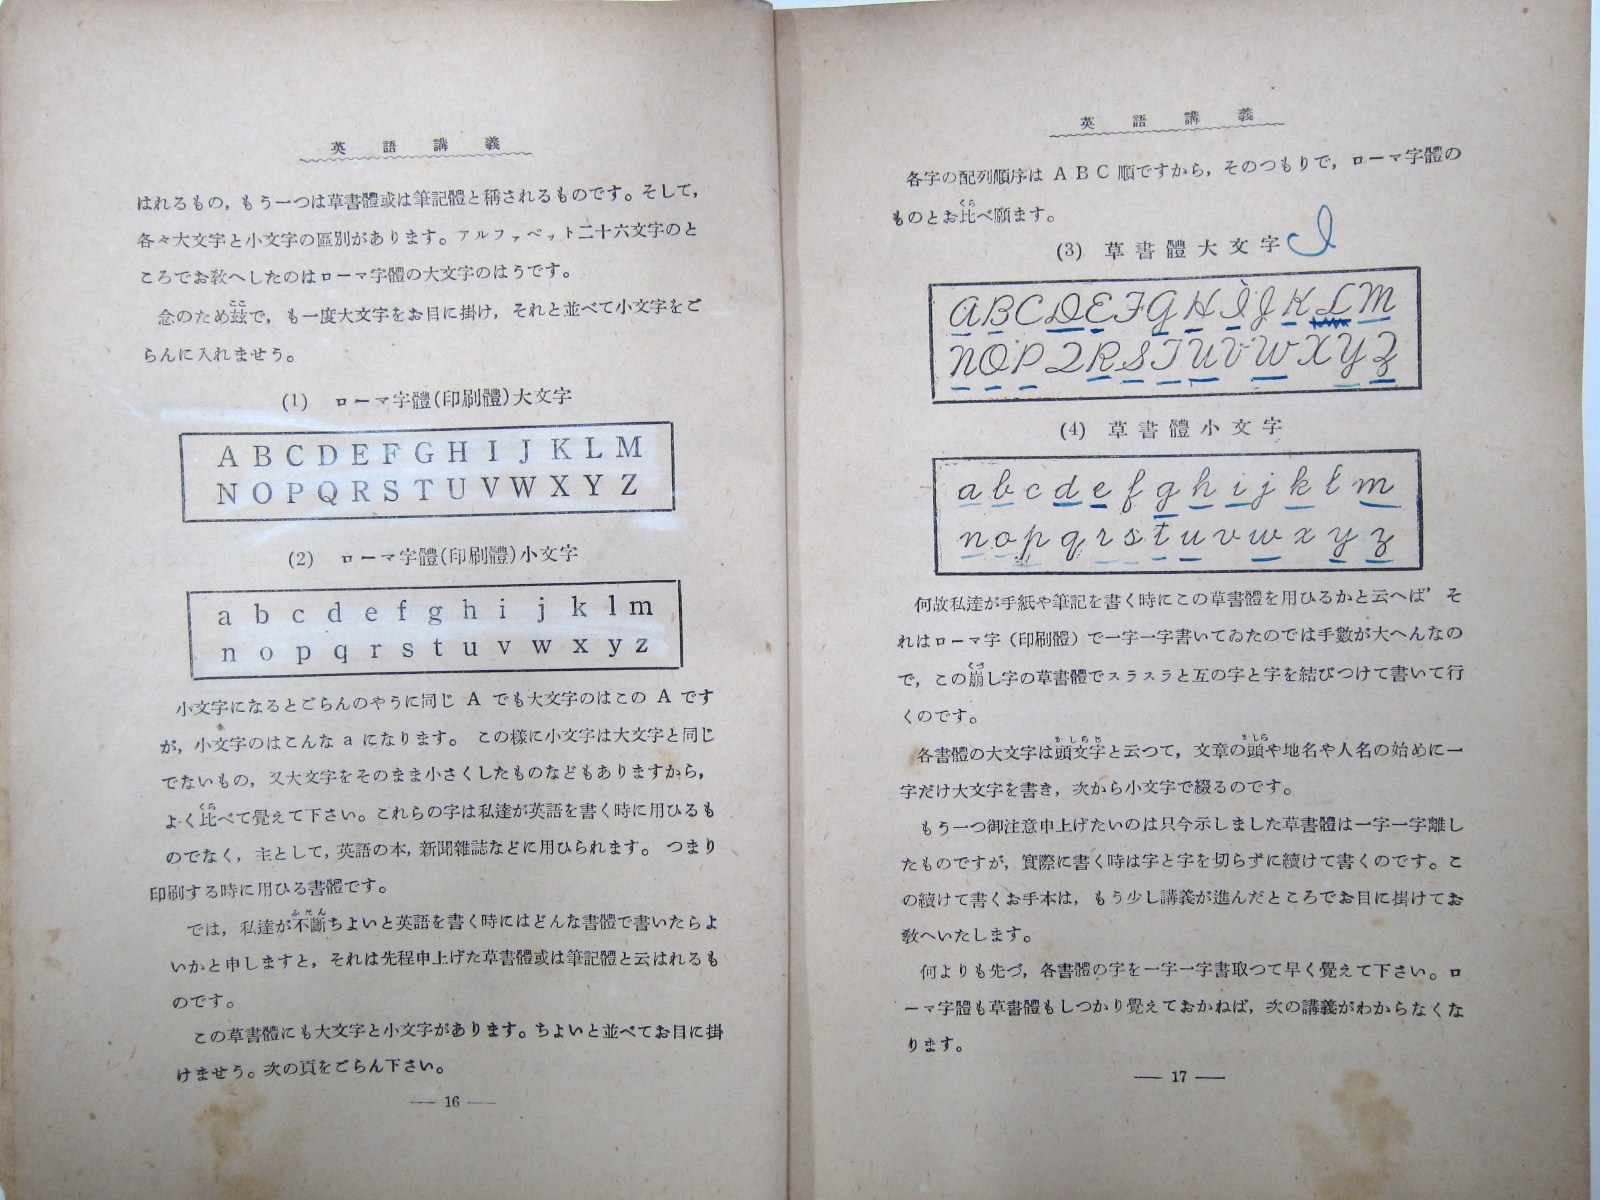 英語講義
はれるもの，もう一つは草書體或は筆記體と稱されるものです。そして，
各々大文字と小文字の區別があります。アルファベット二十六文字のと
ころでお敎へしたのはローマ字體の大文字のはうです。
念のため玆で，も一度大文字をお目に掛け，それと並べて小文字をご
らんに入れませう。
(1) ローマ字體(印刷體)大文字
A B C D E F G H I J K L M
N O P Q R S T U V W X Y Z
(2) ローマ字體(印刷體)小文字
a b c d e f g h i j k l m
n o p q r s t u v w x y z
小文字になるとごらんのやうに同じ A でも大文字のはこの A です
が，小文字のはこんな a になります。 この樣に小文字は大文字と同じ
でないもの，又大文字をそのまま小さくしたものなどもありますから，
よく比べて覺えて下さい。これらの字は私達が英語を書く時に用ひるも
のでなく，主として，英語の本，新聞雜誌などに用ひられます。 つまり
印刷する時に用ひる書體です。
では，私達が不斷ちよいと英語を書く時にはどんな書體で書いたらよ
いかと申しますと，それは先程申上げた草書體或は筆記體と云はれるも
のです。
この草書體にも大文字と小文字があります。ちよいと並べてお目に掛
けませう。次の頁をごらん下さい。
— 16 —
英語講義
各字の配列順序は A B C 順ですから，そのつもりで，ローマ字體の
ものとお比べ願ます。
(3) 草書體大文字
A B C D E F G H I J K L M
N O P Q R S T U V W X Y Z
(4) 草書體小文字
a b c d e f g h i j k l m
n o p q r s t u v w x y z
何故私達が手紙や筆記を書く時にこの草書體を用ひるかと云へば’そ
れはローマ字（印刷體）で一字一字書いてゐたのでは手數が大へんなの
で，この崩し字の草書體でスラスラと互の字と字を結びつけて書いて行
くのです。
各書體の大文字は頭文字と云つて，文章の頭や地名や人名の始めに一
字だけ大文字を書き，次から小文字で綴るのです。
もう一つ御注意申上げたいのは只今示しました草書體は一字一字離し
たものですが，實際に書く時は字と字を切らずに續けて書くのです。こ
の續けて書くお手本は，もう少し講義が進んだところでお目に掛けてお
敎へいたします。
何よりも先づ，各書體の字を一字一字書取つて早く覺えて下さい。ロ
ーマ字體も草書體もしつかり覺えておかねば，次の講義がわからなくな
ります。
— 17 —